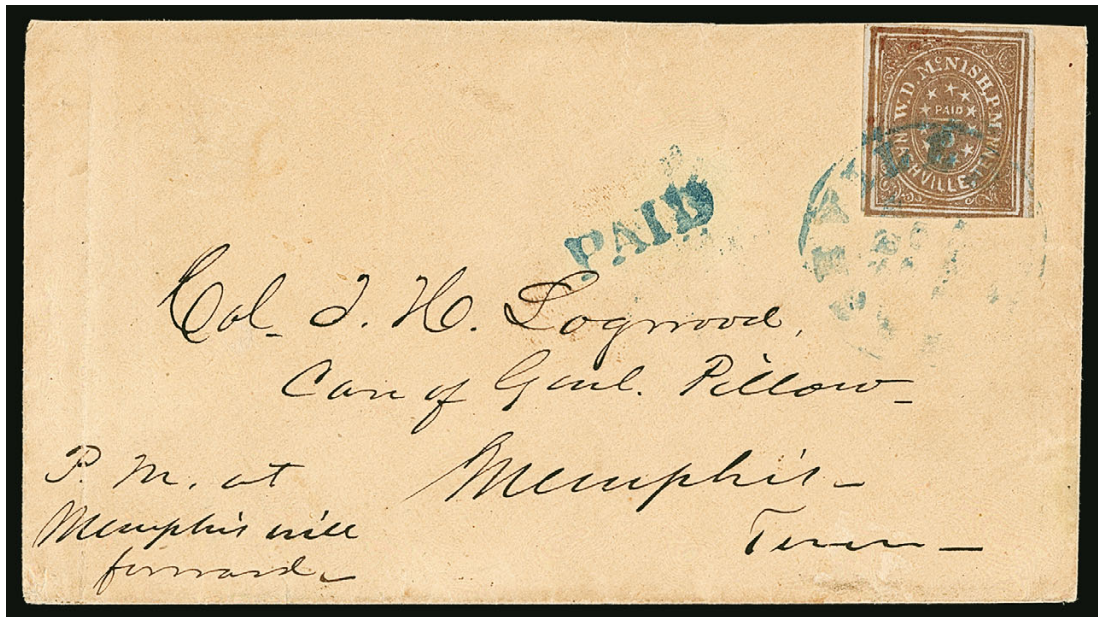 W.D. McNISH. P.M.
PAID
5
NASHVILLE. TENN.
PAID
Col. T. H. Logwood,
Care of Genl. Pillow
Memphis
Tenn
P. M. at
Memphis will
forward